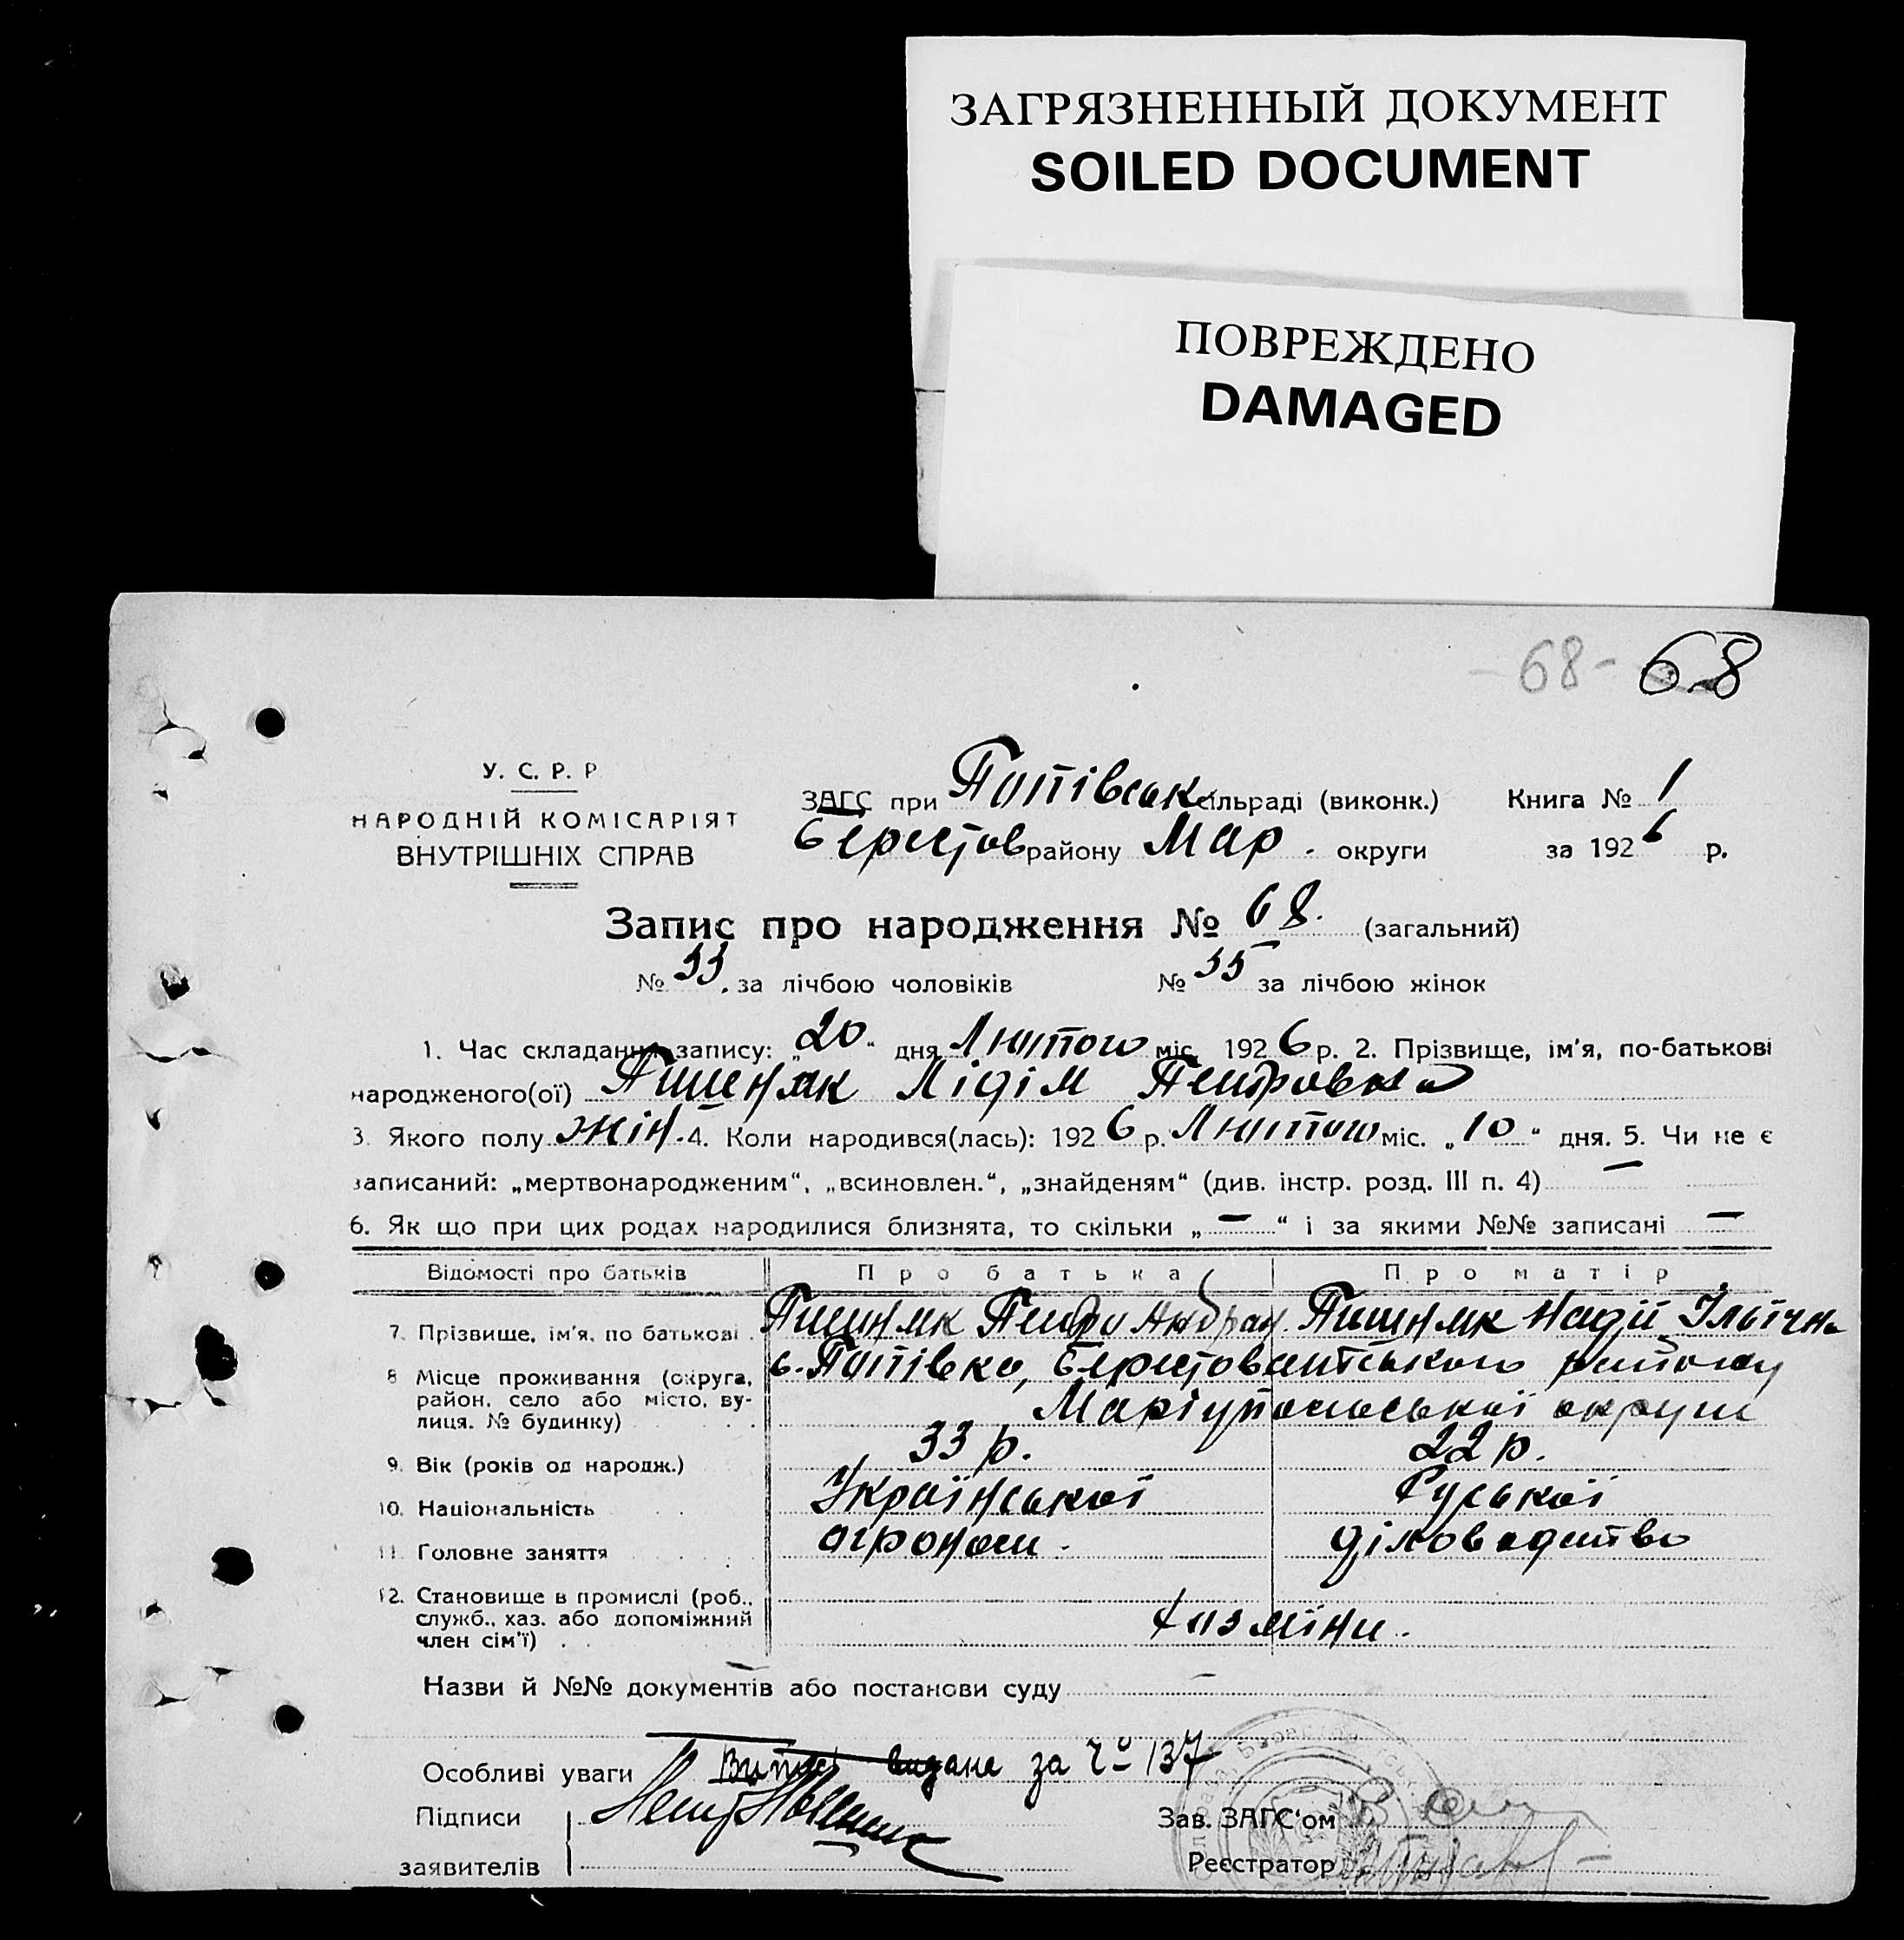 ЗАГРЯЗНЕННЫЙ ДОКУМЕНТ
SOILED DOCUMENT
ПОВРЕЖДЕНО
DAMAGED
- 68 - 68
У. С. Р. Р
НАРОДНІЙ КОМІСАРІЯТ
ВНУТРІШНІХ СПРАВ
ЗАГС при Попівськ сільраді (виконк.) Книга № 1
Берестов району Мар. округи за 1926 р.
Запис про народження № 68. (загальний)
№ 33. за лічбою чоловіків № 35 за лічбою жінок
1. Час складання запису: „20“ дня Лютого міс. 1926 р. 2. Прізвище, ім'я, по-батькові
народженого(ої) Пшеняк Лідія Петровна
3. Якого полу жін. 4. Коли народився(лась): 1926 р. Лютого міс. „10“ дня. 5. Чи не є
записаний: „мертвонародженим“, „всиновлен.“, „знайденям“ (див. інстр. розд. III п. 4) —
6. Як що при цих родах народилися близнята, то скільки „—“ і за якими №№ записані —
Відомості про батьків Про батька Про матір
7. Прізвище, ім'я, по батькові. Пшеняк Петро Андран. Пшеняк Надія Ільїчна
8 Місце проживання (округа, район, село або місто, вулиця. № будинку) с. Попівка, Берестовського району
Маріупольської округи
9. Вік (років од народж.) 33 р. 22 р.
10. Національність Української Руської
11. Головне заняття агроном. діловодство
12. Становище в промислі (роб.,
служб., хаз. або допоміжний
член сім'ї)
Назви й №№ документів або постанови суду —
Особливі уваги Випис видана за № 137
Підписи
заявителів
Зав. ЗАГС'ом
Реєстратор